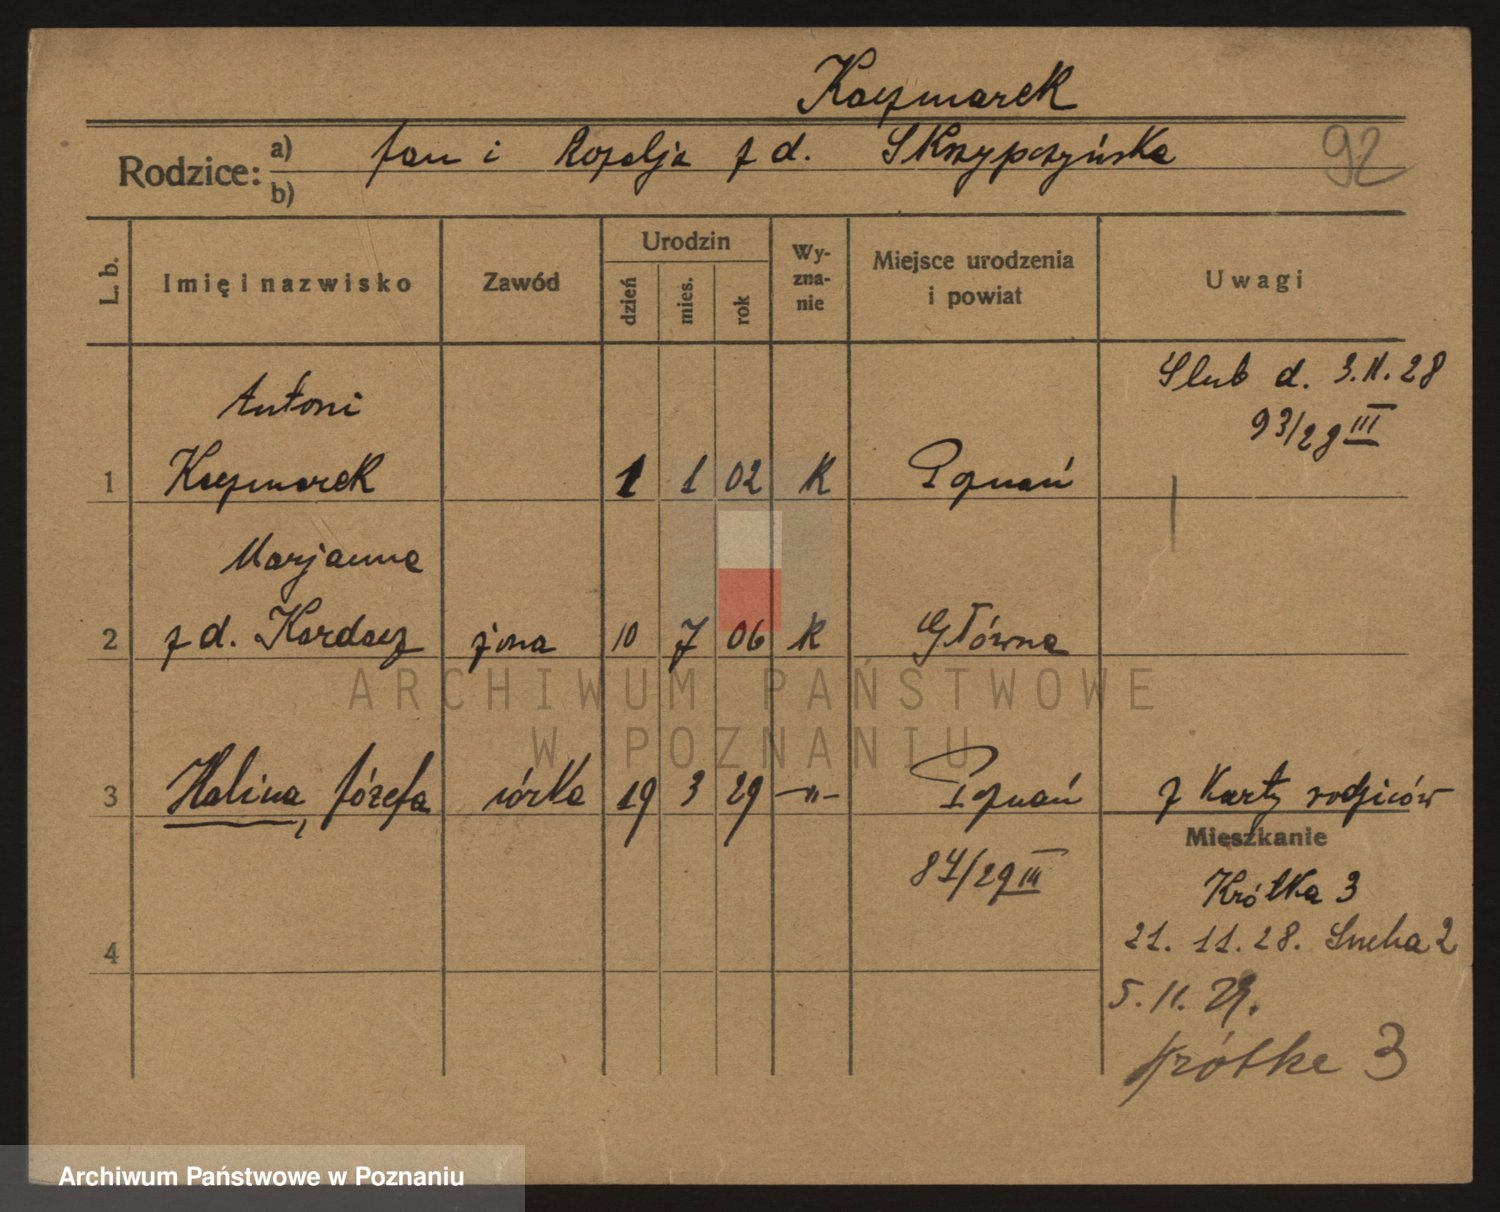 Kaczmarek
Rodzice: a) Jan i Rozalja z d. Skrzypczyńska
b)
92
L. b.
Imię i nazwisko
Zawód
Urodzin
dzień
mies.
rok
Wy-
zna-
nie
Miejsce urodzenia
i powiat
Uwagi
Antoni
1 Kaczmarek 1 1 02 K Poznań
Slub d. 3.II.28
93/28 III
Marjanna
2 z d. Kardacz żona 10 7 06 K Główna
3 Halina, Józefa córka 19 3 29 -"- Poznań z Karty rodziców
84/29 III
Mieszkanie
Krótka 3
4
21. 11. 28. Sucha 2
5. II. 29.
Krótka 3
ARCHIWUM PAŃSTWOWE
W POZNANIU
Archiwum Państwowe w Poznaniu